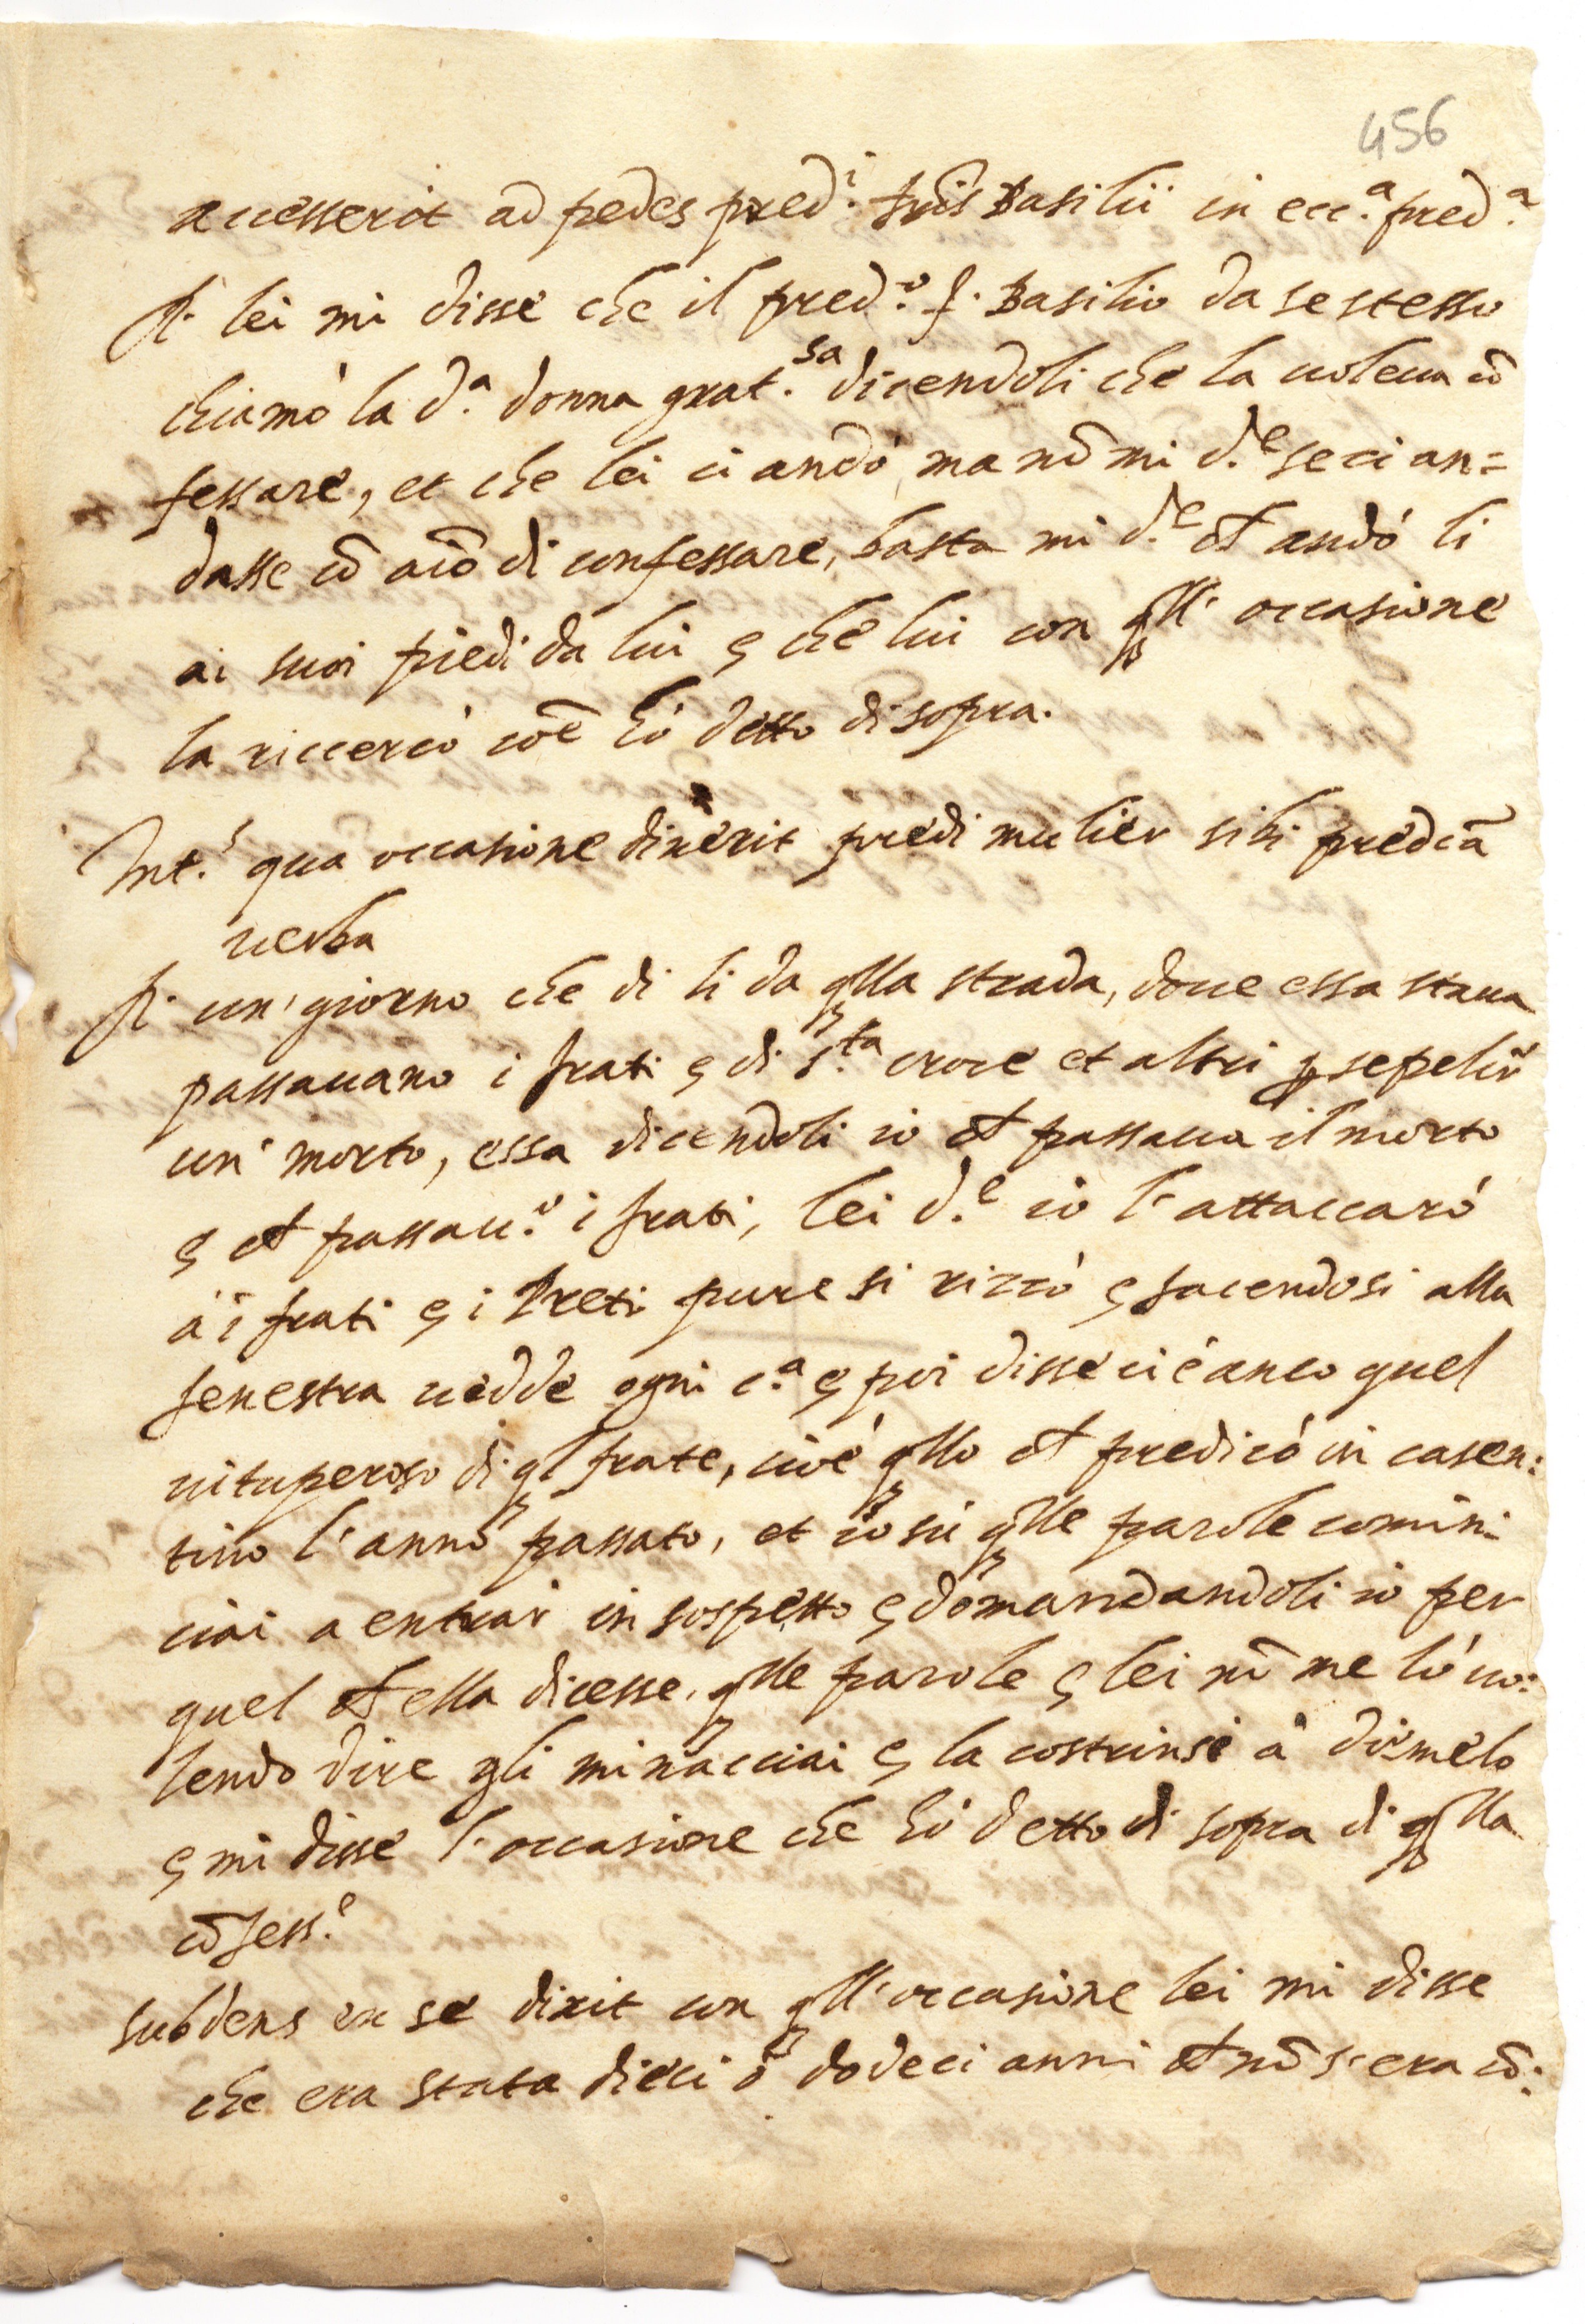 456
accesserit ad pedes pred.i fris Basilii in ecc.a pred.a
R. lei mi disse che il pred.o f. Basilio da se stesso
chiamò la d.a donna grat.sa dicendoli che la uoleua cō
fessare, et che lei ci andò, ma nō mi d.e se ci an=
dasse cō aiō di confessare, basta mi d.e ch andò li
ai suoi piedi da lui e che lui con qll' occasione
la riccercò coē hò detto di sopra.
Int.s qua occasione dixerit pred. mulier sibi predcā
uerba
R. un' giorno che di li da qlla strada, doue essa staua
passauano i frati e di s.ta croce et altri p sepelir
un' morto, essa dicendoli io ch passaua il morto
e ch passau.o i frati, lei d.e io l'attaccarò
à i frati e i Preti pure si rizzò e facendosi alla
fenestra uedde ogni c.a e poi disse ci è anco quel
uituperoso di ql frate, cioè qllo ch predicò in casen:
tino l'anno passato, et io sù qlle parole comin:
ciai a entrar in sospetto e domandandoli io per
quel ch ella dicesse qlle parole e lei nō me lò uo:
lendo dire gli minacciai e la costrinsi à dirmelo
e mi disse l'occasione che hò detto di sopra di qlla
cōfess.e
subdens ex se dixit con qll'occasione lei mi disse
che era stata dieci ò dodeci anni ch nō s'era cō: